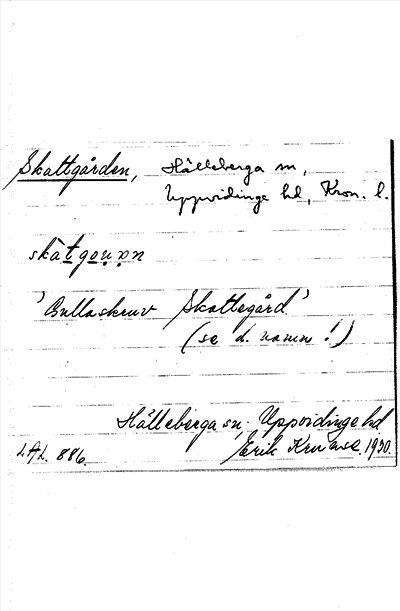 Skattgården, Hälleberga sn,
Uppvidinge hd, Kron. l.
skàtgou̯ṇn
'Gullaskruv Skattegård'
(se d. namn!)
Hälleberga sn, Uppvidinge hd
LAL. 886. Erik Kruuse. 1930.